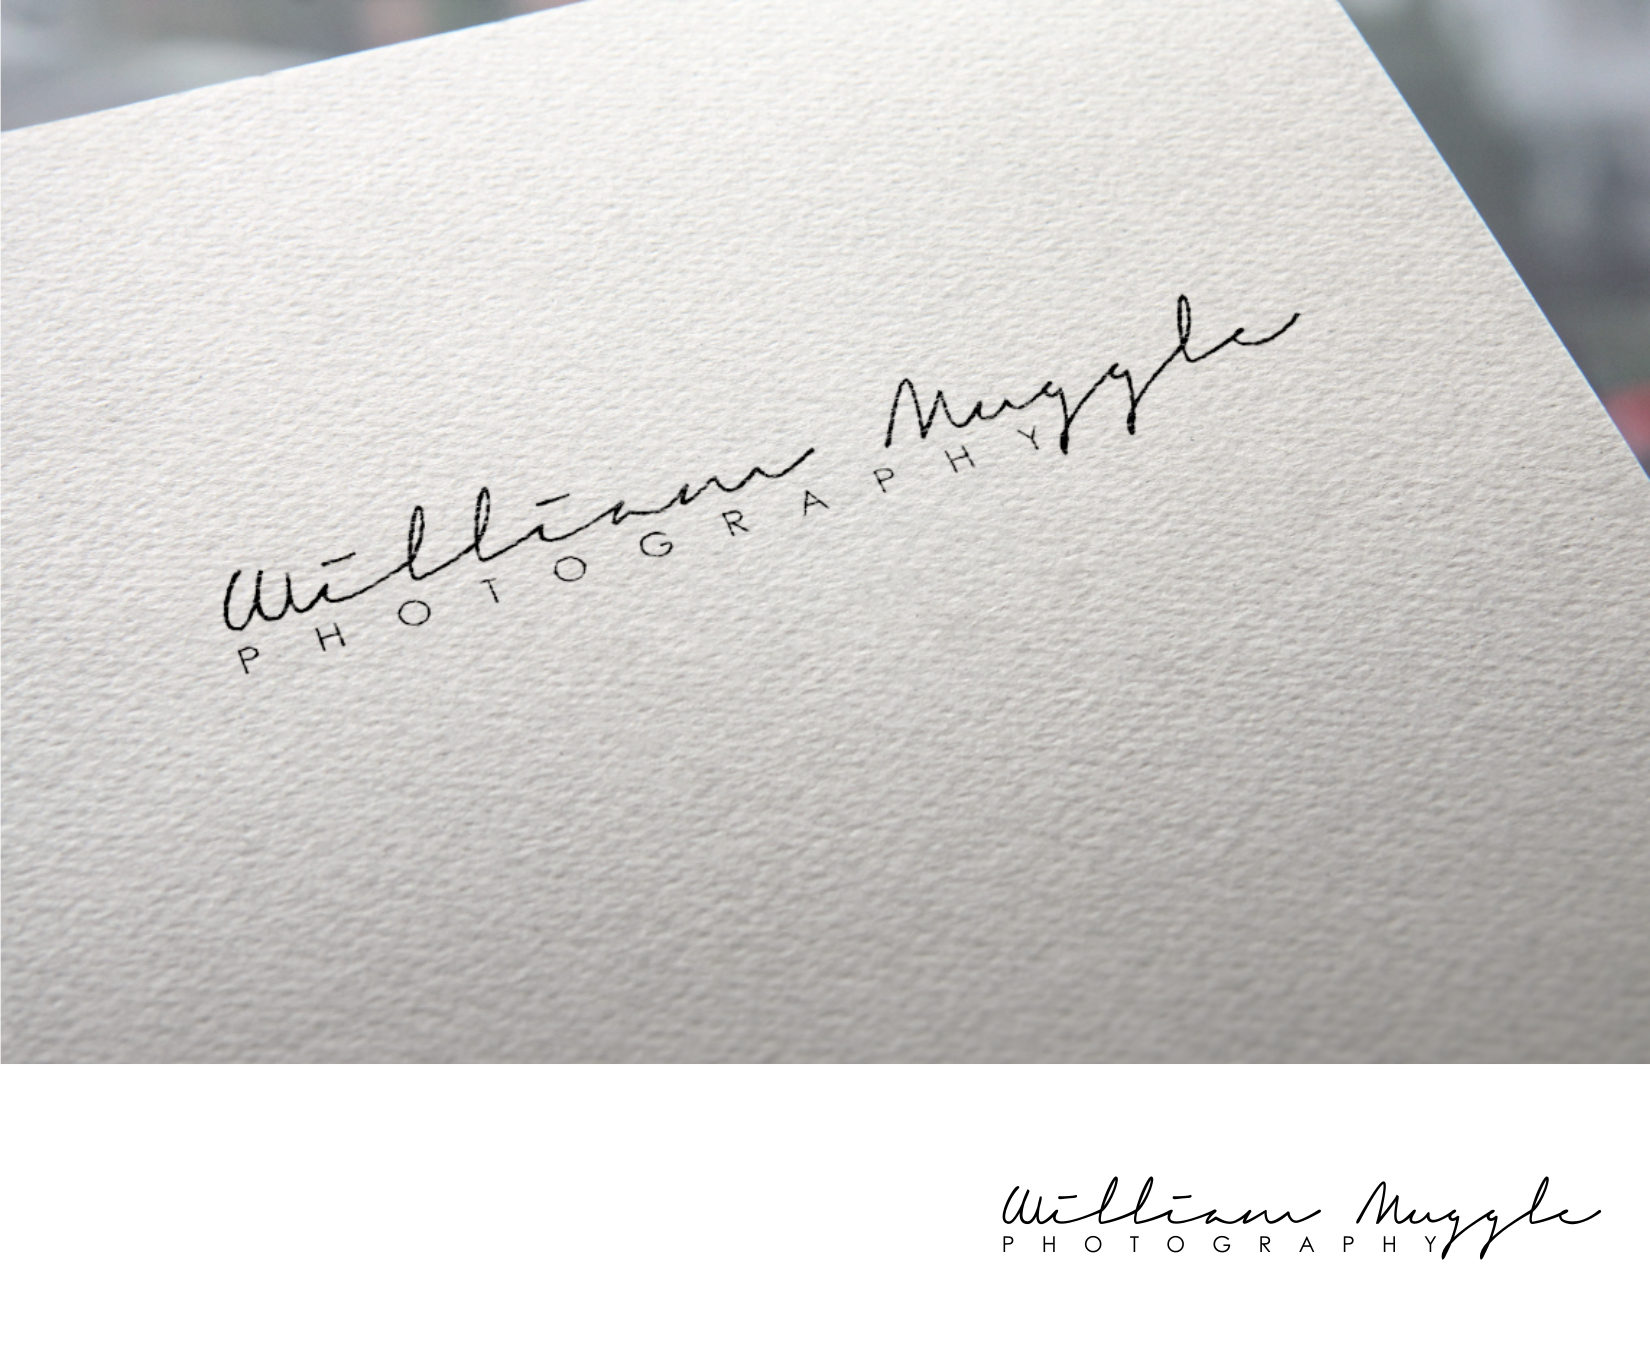 William Muggle
PHOTOGRAPHY
William Muggle
PHOTOGRAPHY